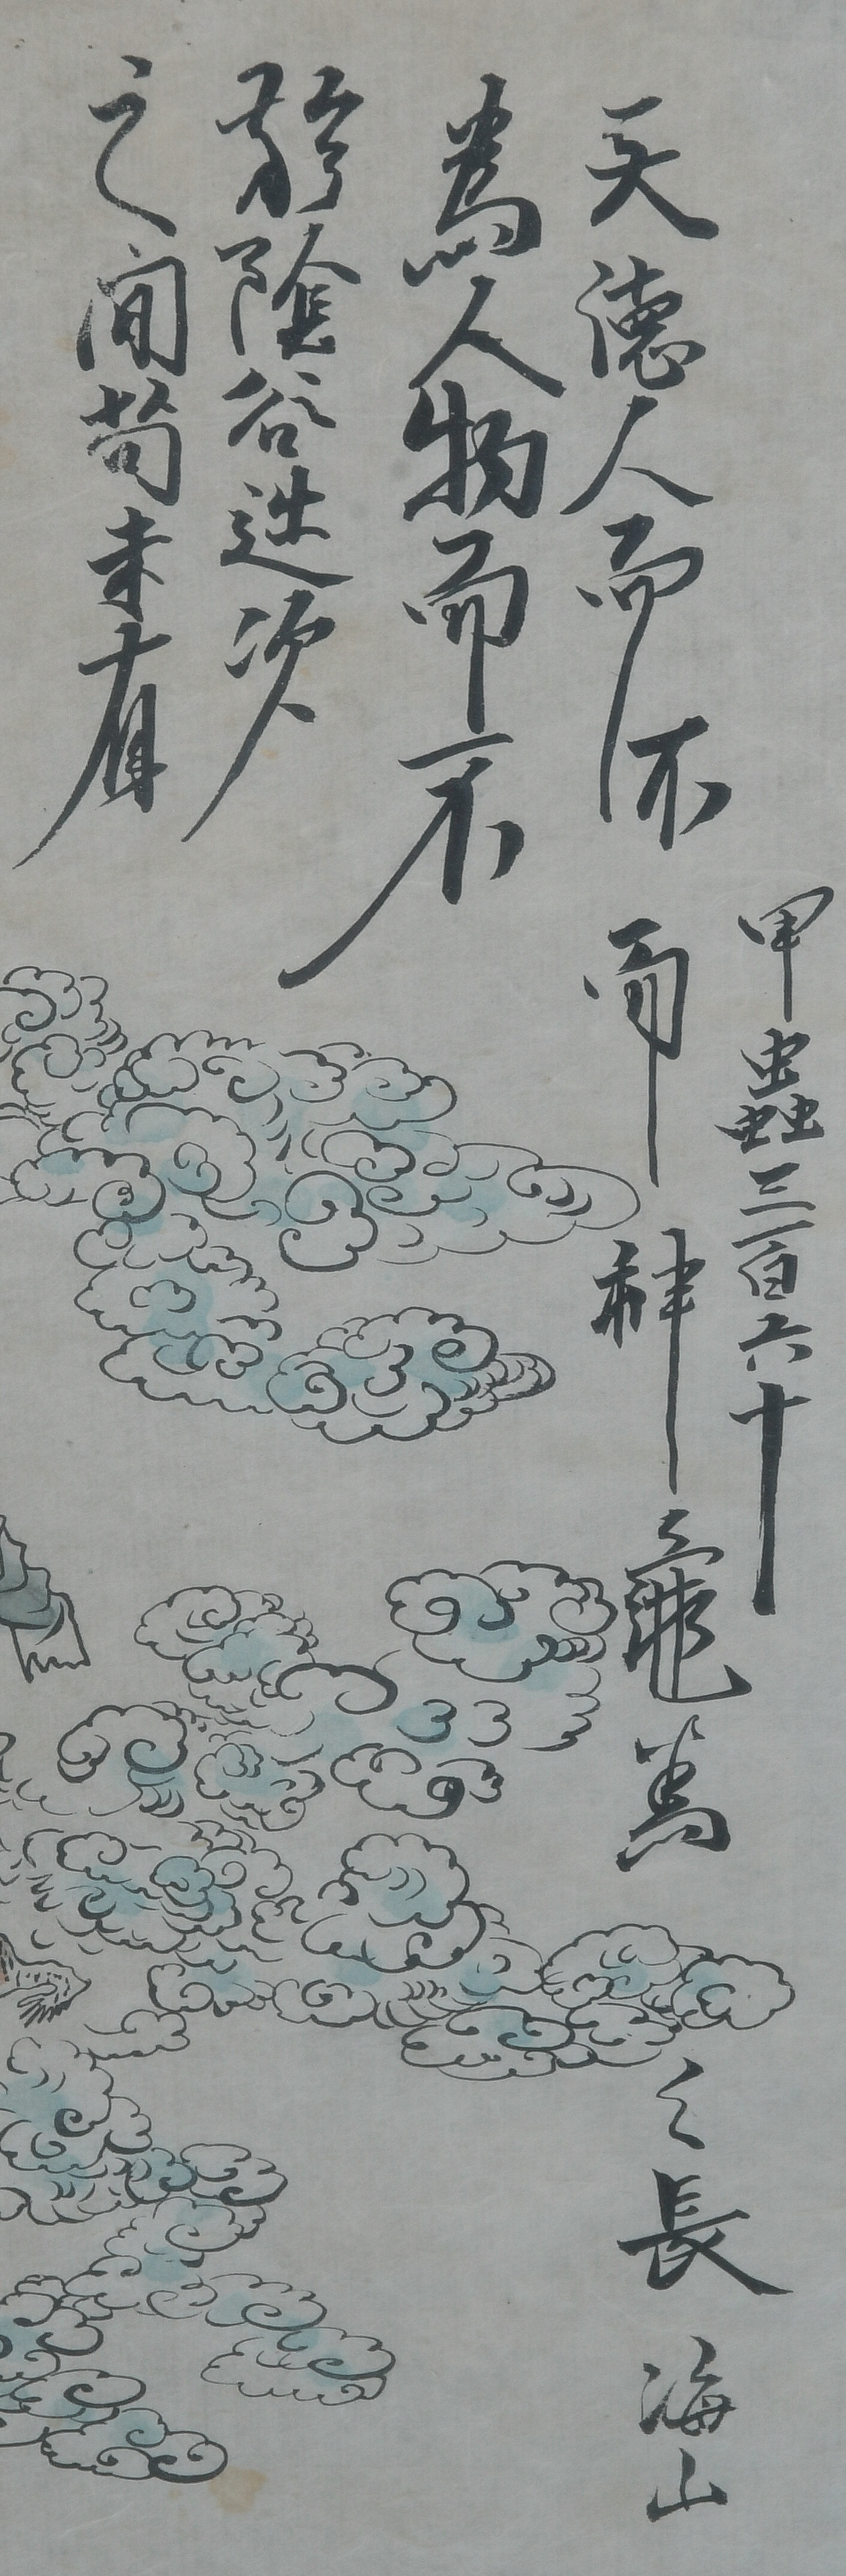 甲蟲三百六十
而神龜為之長 海山
天德人而不
為人物而不
陰谷造次
之间苟未有